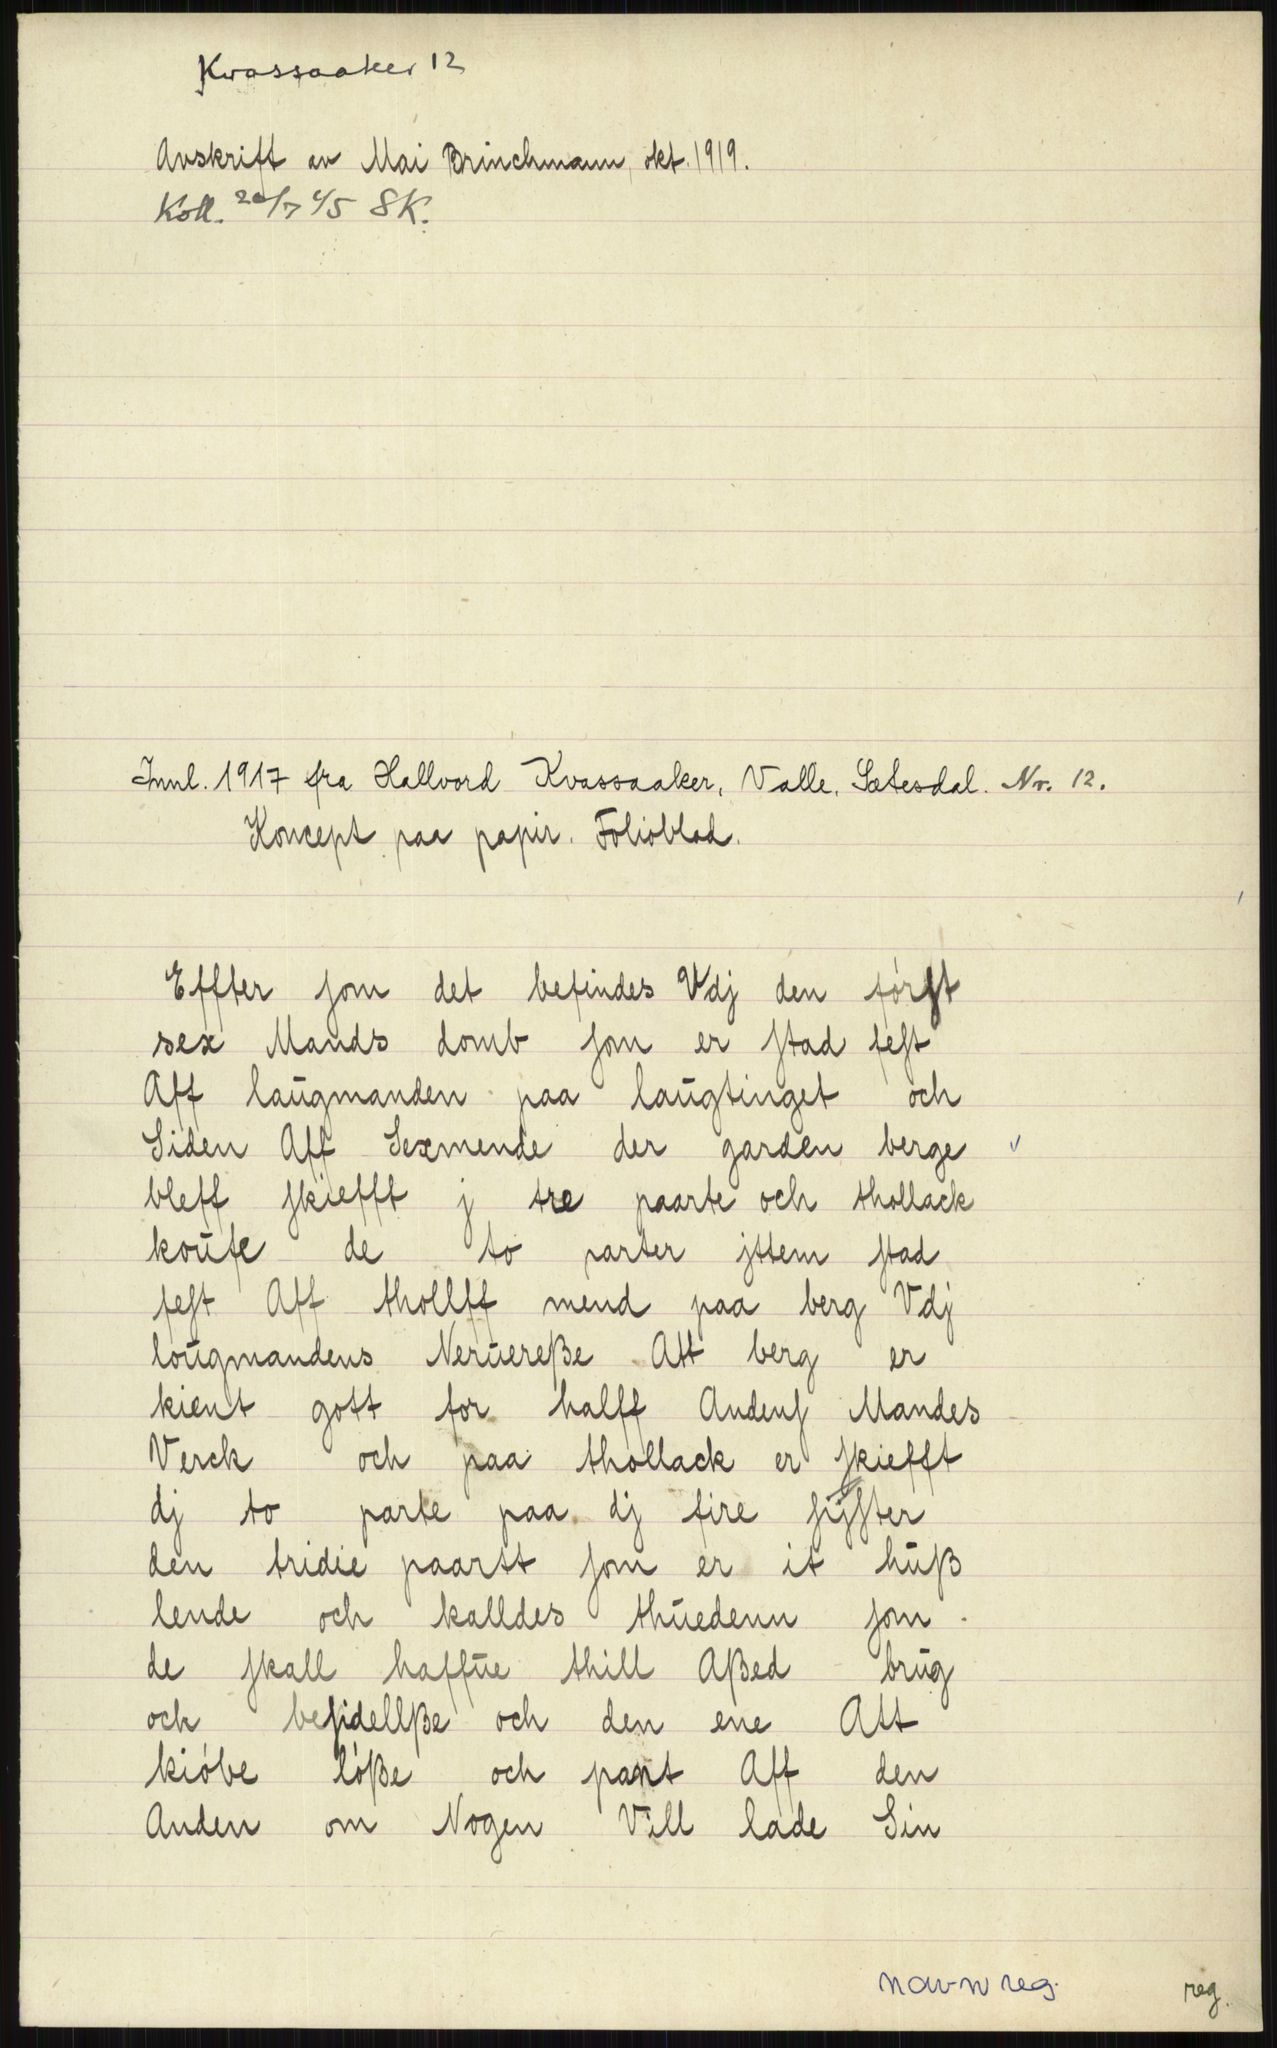 Kvassaaker 12
Avskrift av Mai Brinchmann, okt. 1919.
Koll. 20/7 45 SK.
Innl. 1917 fra Hallvord Kvassaaker, Valle, Sætesdal. Nr. 12.
Koncept paa papir. Folioblad.
Effter ſom det befindes Vdj den førſt
sex Mands domb ſom er ſtad feſt
Aff laŭgmanden paa laŭgtinget och
Siden Aff Sexmende der garden berge
bleff ſkiefft j tre paarte och thollack
koŭfe de to parter jttem ſtad
feſt Aff thollff mend paa berg Vdj
loŭgmandens Nerŭereße Att berg er
kient gott for halff Andenſ Mandes
Verck och paa thollack er ſkiefft
dj to parte paa dj fire ſyſter
den tridie paartt ſom er it hŭß
lende och kalldes thŭedenn ſom
de ſkall haffŭe thill Aßed brŭg
och beſidellße och den ene Att
kióbe lóße och pant Aff den
Anden om Nogen Vill lade Sin
navnreg.
reg.